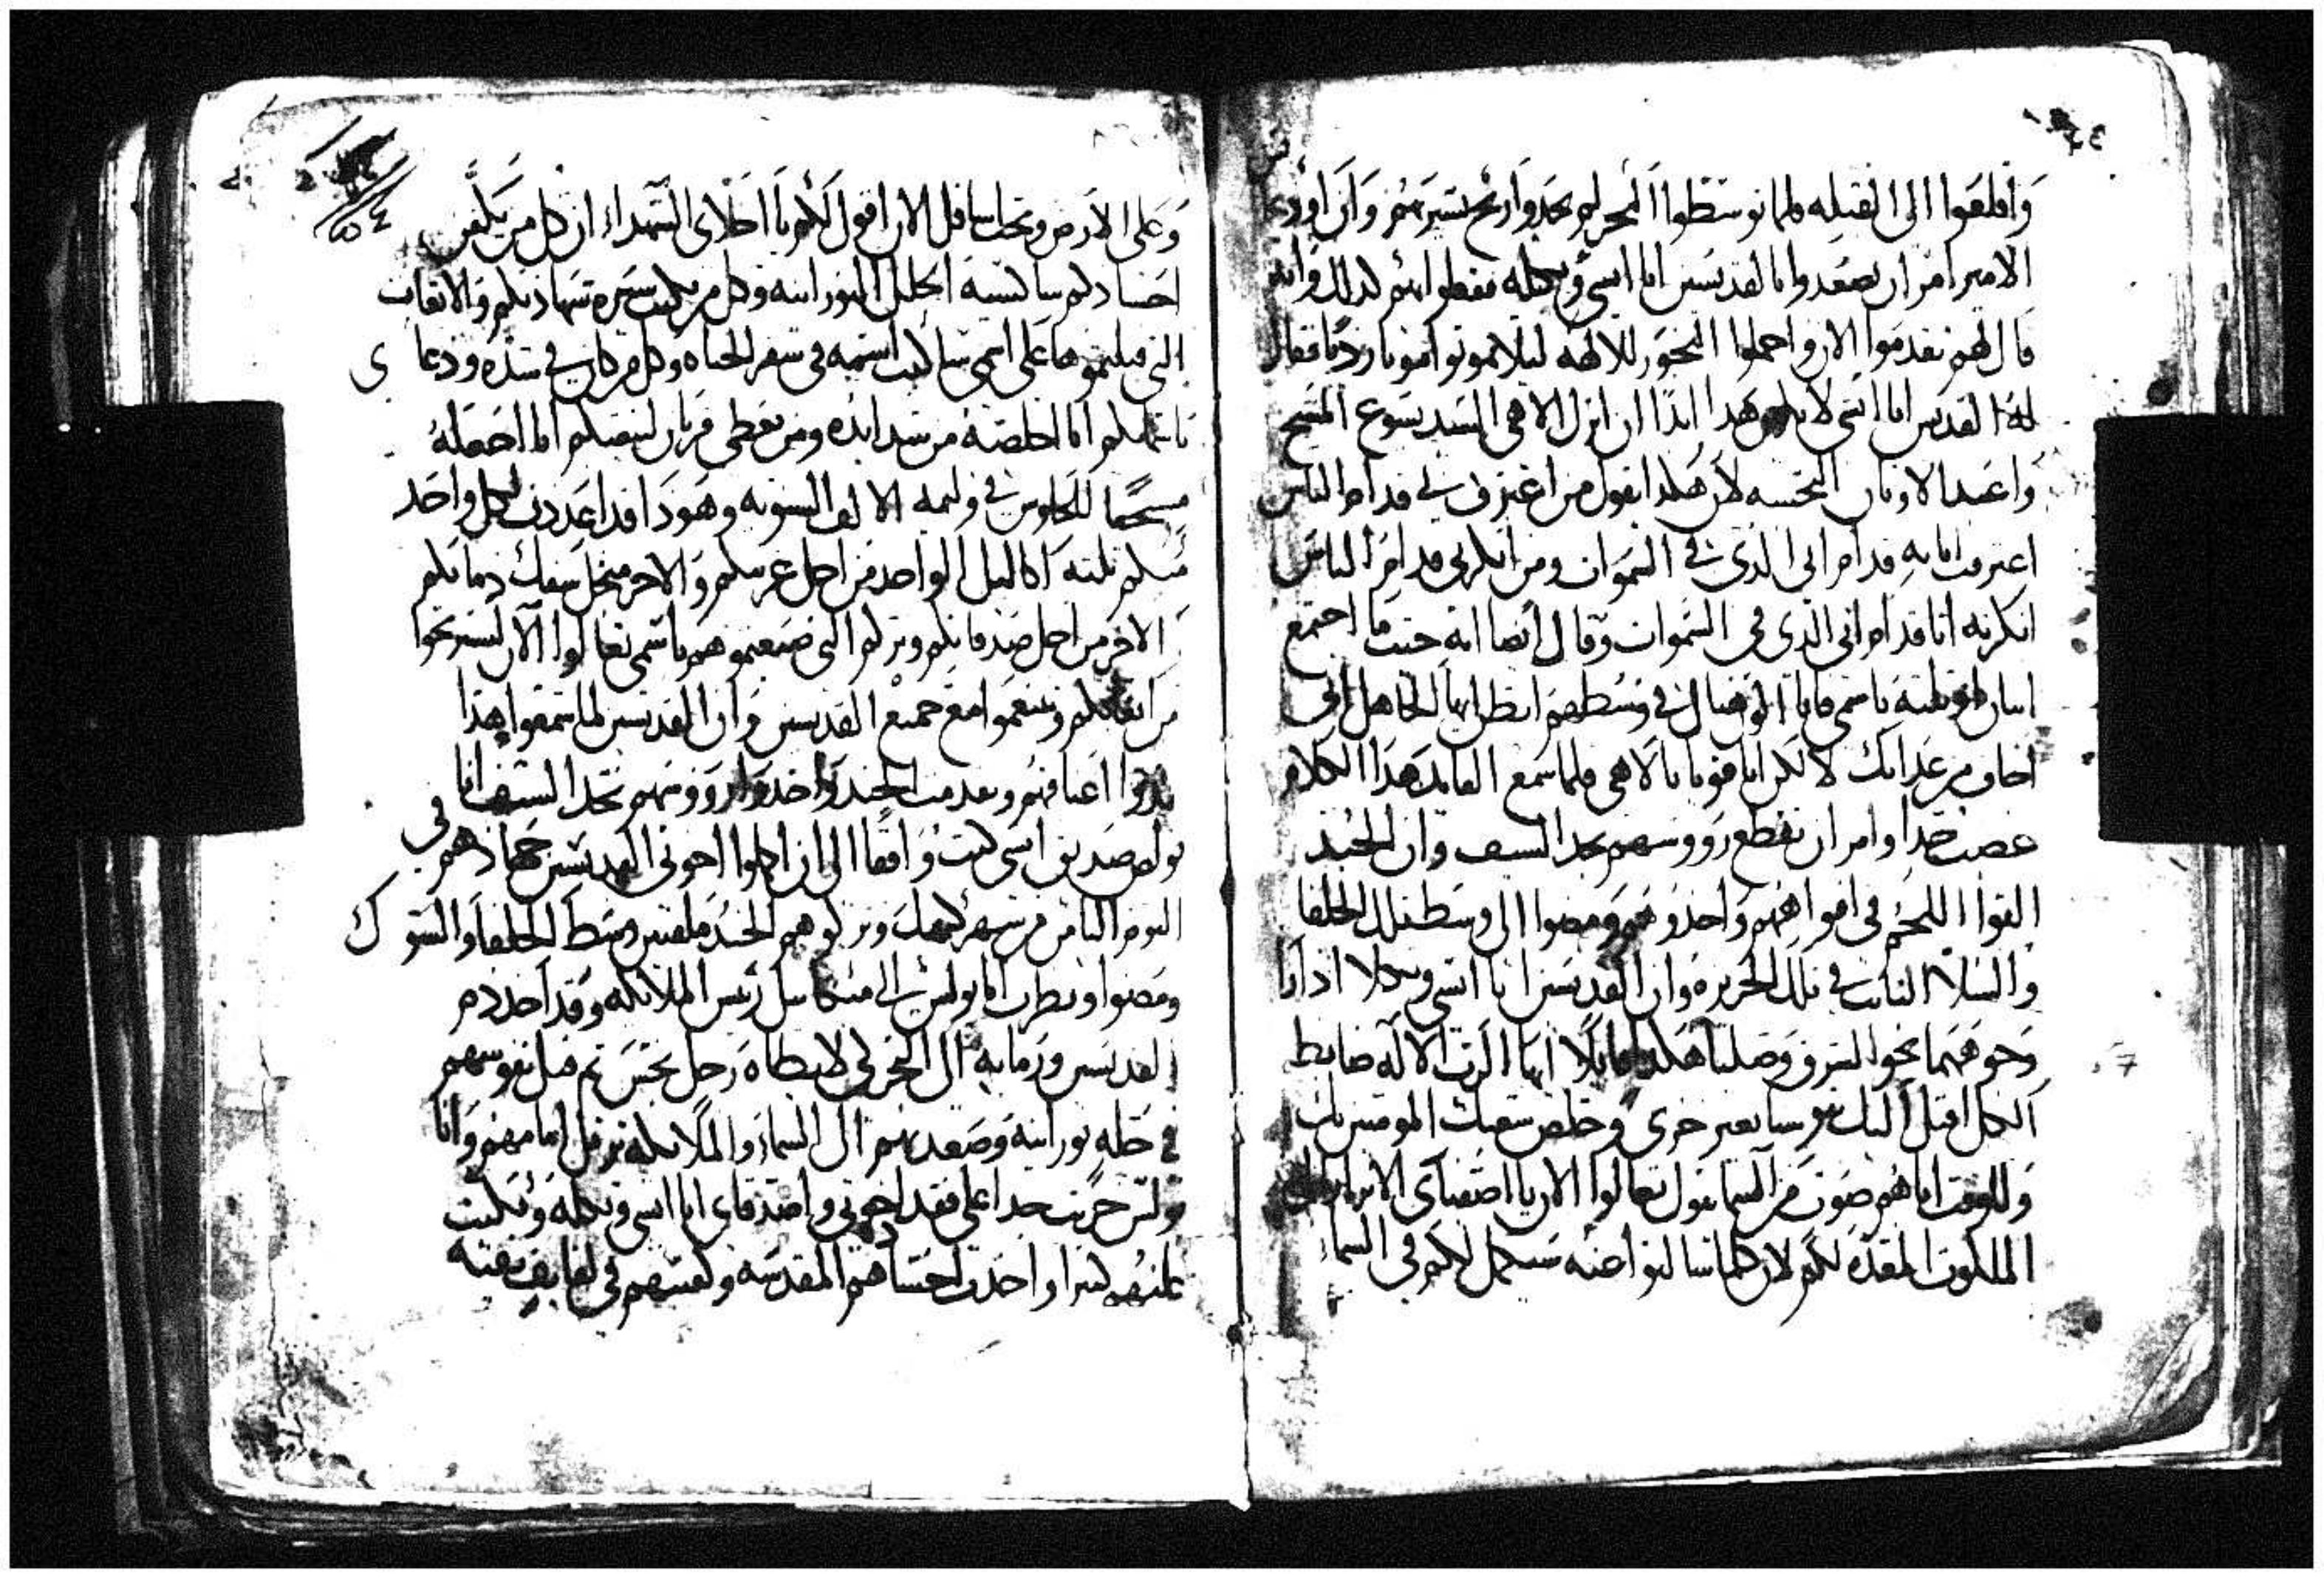 واقلعوا الى القبيله فلما توسطوا البحر لم يجدوا ريح تسيرهم وان اوريحا
الامير امر ان يصعدوا انا القديسين ابا ايسي وتكله ففعلوا بهم كذلك وانه
قال لهم تقدموا الان واحملوا البخور للالهه ليلا تموتوا موتا رديا فقال
له القديس ابا ايسي لا يكون هذا ابدا ان اترك الاهي السيد يسوع المسيح
واعبد الاوثان النجسه لان هكذا يقول من اعترف بي قدام الناس
اعترفت انا به قدام ابي الذي في السموات ومن انكرني قدام الناس
انكرته انا قدام ابي الذي في السموات وقال ايضا انه حيث ما اجتمع
اثنان او ثلثه باسمي فانا اكون هناك في وسطهم اتظن ايها الجاهل اني
اخاف من عذابك لا لكن انا قويا بالاهي فلما سمع القايد هذا الكلام
غضب جدا وامر ان تقطع رووسهم بحد السيف وان الجند
القوا اللجم في افواههم واخذوهم ومضوا الى وسط تلك الحلفا
والسلا النابت في تلك الجزيره وان القديسين ابا ايسي وتكلا ادارا
وجوههما نحو الشرق وصليا هكذا قايلا ايها الرب الاله ضابط
الكل اقبل اليك نفوسنا بغير خزي وخلص شعبك المومنين بك
وللوقت اتاهم صوت من السما يقول تعالوا الان يا اصفياي الابرار
الملكوت المعده لكم لان كلما سالتموا عنه سيكمل لكم في السما
وعلى الارض وتحت اسافل الان اقول لكم يا احلاي الشهداء ان كل من يكفن
اجسادكم سالبسه الحلل النورانيه وكل من يكتب سيره شهادتكم والاتعاب
التي قبلتموها على اسمي ساكتب اسمه في سفر الحياه وكل من كان في شده ودعاني
باسمايكم انا اخلصه من شدايده ومن يعطي قربان لبيعتكم انا اجعله
مستحقا للجلوس في وليمه الالف السنه وهوذا قد اعددت لكل واحد
منكم ثلثه اكاليل الواحد من اجل غربتكم والاخر من اجل سفك دمايكم
الاخر من اجل صدقاتكم وبركم التي صنعتموهم باسمي تعالوا الان لتستريحوا
من اتعابكم وتتنعموا مع جميع القديسين وان القديسين لما سمعوا هذا
مدوا اعناقهم وتقدمت الجند واخذوا رووسهم بحد السيف انا
بولص صديق ايسي كنت واقفا الى ان اكملوا اخوتي القديسين جهادهم في
اليوم الثامن من شهر كيهك وتركوهم الجند ملقيين وسط الحلفا والشوك
ومضوا ونظرت انا بولس الى ميكاييل رئيس الملايكه وقد اخذ دم
القديسين ورما به الى البحر لكي لا يطاه رجل نجس ثم قبل نفوسهم
في حله نورانيه وصعد بهم الى السماء والملايكه ترتل امامهم وانا
بولس حزنت جدا على فقد اخوتي واصدقاي ابا ايسي وتكله وبكيت
عليهم كثيرا واخذت اجسادهم المقدسه ولففتهم في لفايف نقيه